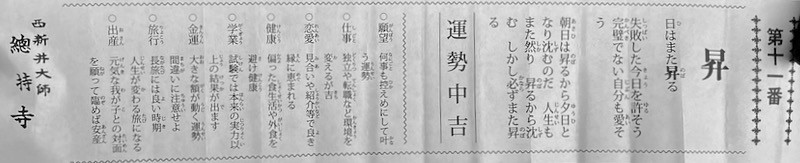 第十一番
昇
日はまた昇る
失敗した今日を許そう
完璧でない自分も愛そ
う
朝日は昇るから夕日と
なり沈むのだ　人生も
また然り　昇るから沈
む　しかし必ずまた昇
る
運勢 中吉
○願望　何事も控えめにして叶
う運勢
○仕事　独立や転職など環境を
変えるが吉
○恋愛　見合いや紹介等で良き
縁に恵まれる
○健康　偏った食生活や外食を
避け健康
○学業　試験では本来の実力以
上の結果が出ます
○金運　大きな額が動く運勢
間違いに注意せよ
○旅行　長旅には良い時期
人生が変わる旅になる
○出産　元気な我が子との対面
を願って臨めば安産
西新井大師 總持寺